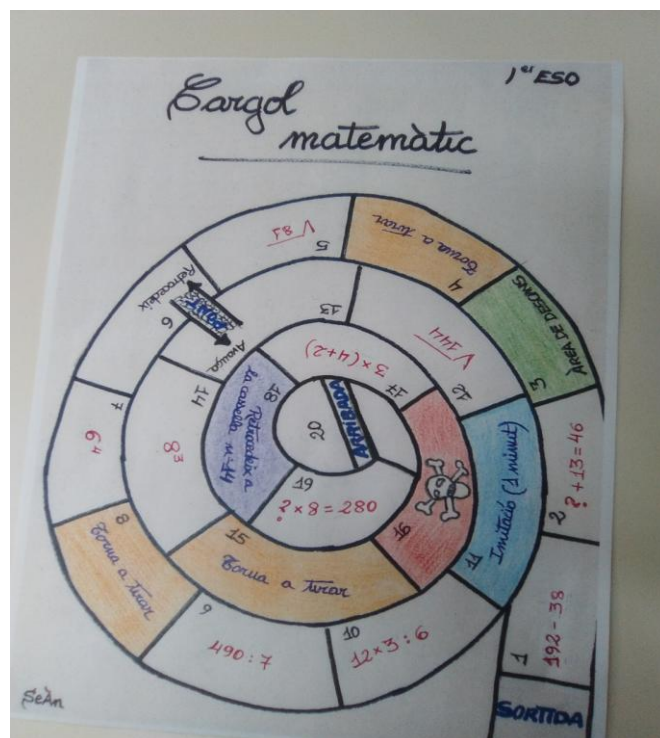 1er ESO
Cargol
matemàtic
SORTIDA
1
192 - 38
2
? + 13 = 46
3
ÀREA DE DESCANS
4
Torna a tirar
5
√81
6
Retrocedeix
PONT
Avança
7
6⁴
8
Torna a tirar
9
490 : 7
10
12 × 3 : 6
11
Imitació (1 minut)
12
√144
13
14
8³
15
Torna a tirar
16
17
3 × (4+2)
18
Retrocedeix a
la casella nº 14
19
? × 8 = 280
20
ARRIBADA
SeÀn